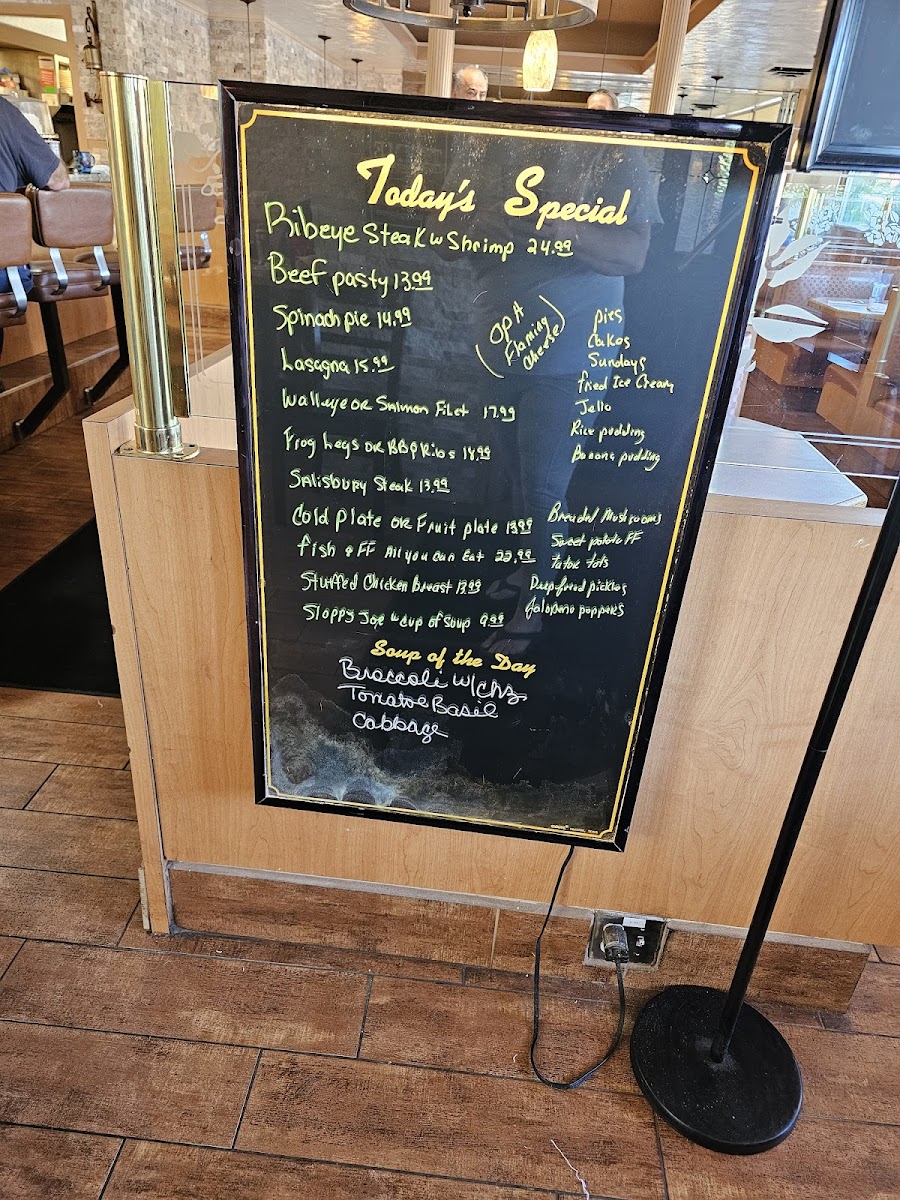 Today's Special
Ribeye Steak w Shrimp 24.99
Beef pasty 13.99
Spinach pie 14.99
Lasagna 15.99
Walleye or Salmon Filet 17.99
Frog Legs or BBQ Ribs 18.99
Salisbury Steak 13.99
Cold plate or Fruit plate 13.99
fish & FF All you can Eat 22.99
Stuffed Chicken Breast 13.99
Sloppy Joe w cup of soup 9.99
(OPA
Flaming
Cheese)
Pies
Cakes
Sundays
fried Ice Cream
Jello
Rice pudding
Banana pudding
Breaded Mushrooms
Sweet potato FF
tator tots
Deep fried pickles
Jalapeno poppers
Soup of the Day
Broccoli w/chz
Tomatoe Basil
Cabbage